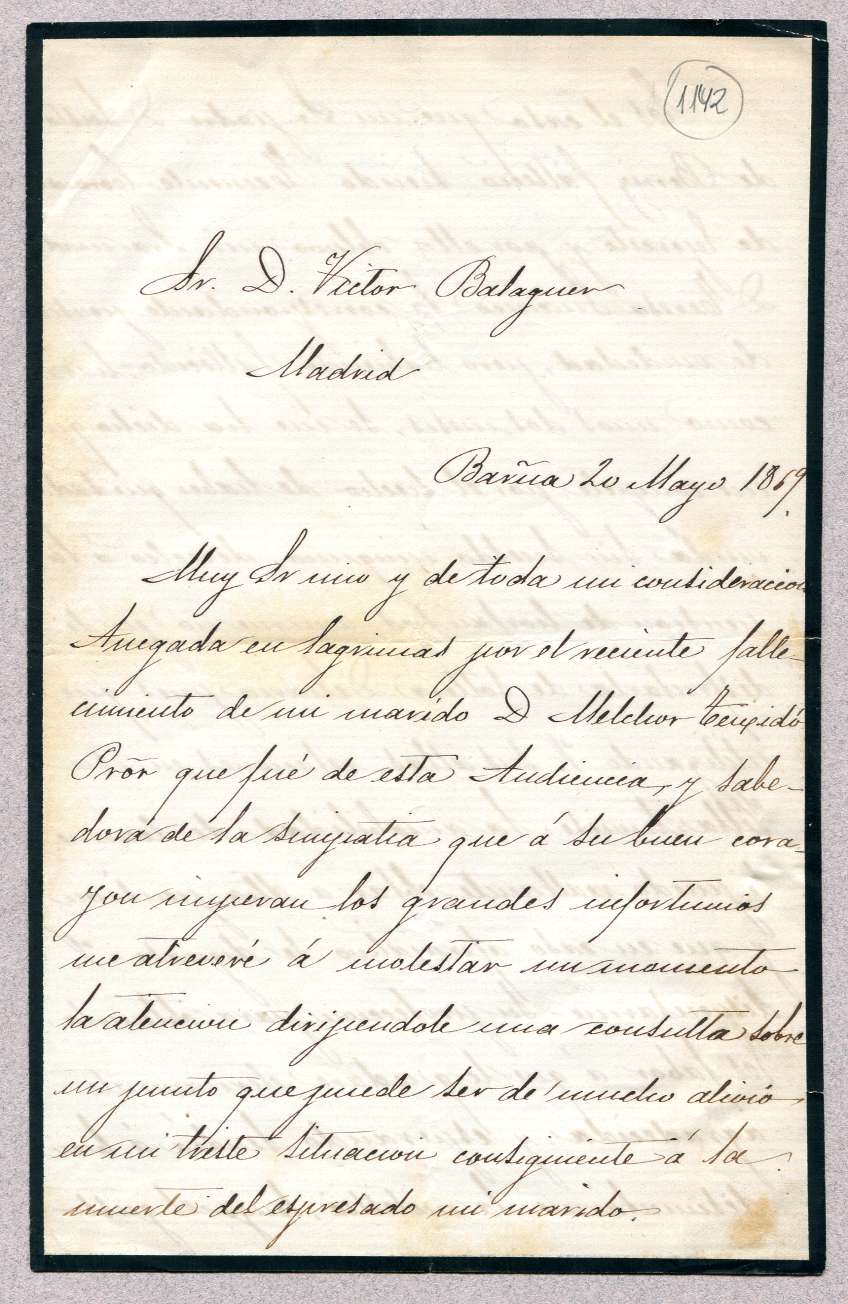 1142
Sr. D. Victor Balaguer
Madrid
Barña 20 Mayo 1869
Muy Sr mio y de toda mi consideracion
Anegada en lagrimas por el reciente falle-
cimiento de mi marido D Melchor Teixidó
Prõr que fué de esta Audiencia, y sabe-
dora de la simpatia que á su buen cora-
zon inspiran los grandes infortunios
me atreveré á molestar un momento
la atencion dirijiendole una consulta sobre
un punto que puede ser de mucho alivio
en mi triste situacion consiguiente á la
muerte del espresado mi marido.